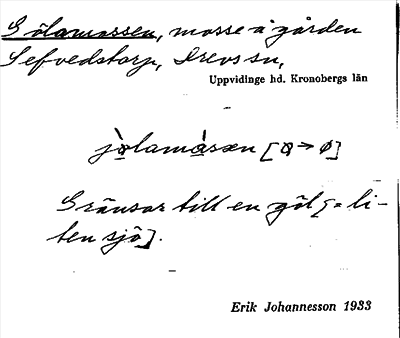 Gölamossen, mosse å gården
Sefvedstorp, Drevs sn,
Uppvidinge hd. Kronobergs län
jòlamåsen [a → ø]
Gränsar till en göl [= li-
ten sjö].
Erik Johannesson 1933